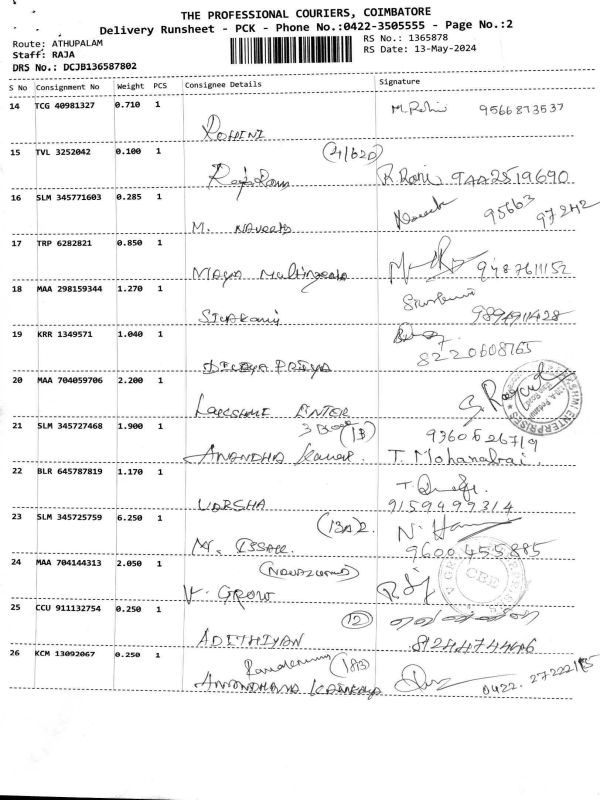 THE PROFESSIONAL COURIERS, COIMBATORE
Delivery Runsheet - PCK - Phone No.:0422-3505555 - Page No.:2
Route: ATHUPALAM
Staff: RAJA
DRS No.: DCJB136587802
RS No.: 1365878
RS Date: 13-May-2024
S No Consignment No Weight PCS Consignee Details Signature
14 TCG 40981327 0.710 1
ROHINI 9566873537
15 TVL 3252042 0.100 1 (4/620)
R Rani 9442519690
16 SLM 345771603 0.285 1
M. NAVEETH 95663 97242
17 TRP 6282821 0.850 1
MAYA Multimedia 9487611152
18 MAA 298159344 1.270 1
SIVAKAMI
19 KRR 1349571 1.040 1
PRIYA 8220608765
20 MAA 704059706 2.200 1
LAKSHMI ENTER
21 SLM 345727468 1.900 1
3 Door (13)
ANANDHA T. Mohanabai.
22 BLR 645787819 1.170 1
VARSHA 9159499314
23 SLM 345725759 6.250 1 (13A)2.
M. ESSAKI. 9600455885
24 MAA 704144313 2.050 1
V. GROW
25 CCU 911132754 0.250 1 (12)
ADITHIYAN 8124474446
26 KCM 13092067 0.250 1
(183)